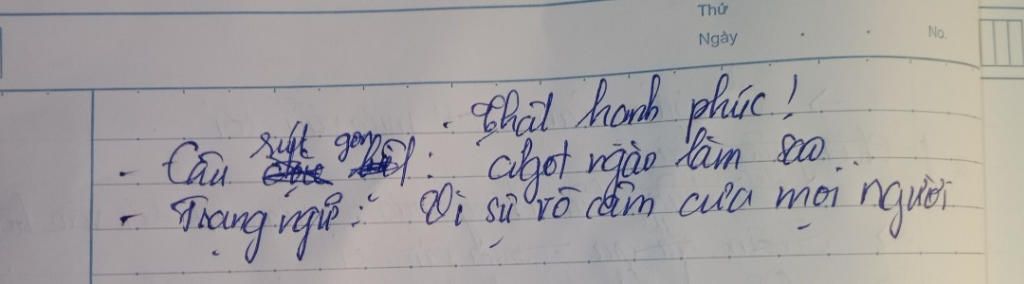 Thứ
Ngày
No.
. Thật hạnh phúc!
- Câu rút gọn: Ngọt ngào làm sao.
- Trạng ngữ: Vì sự vô cảm của mọi người